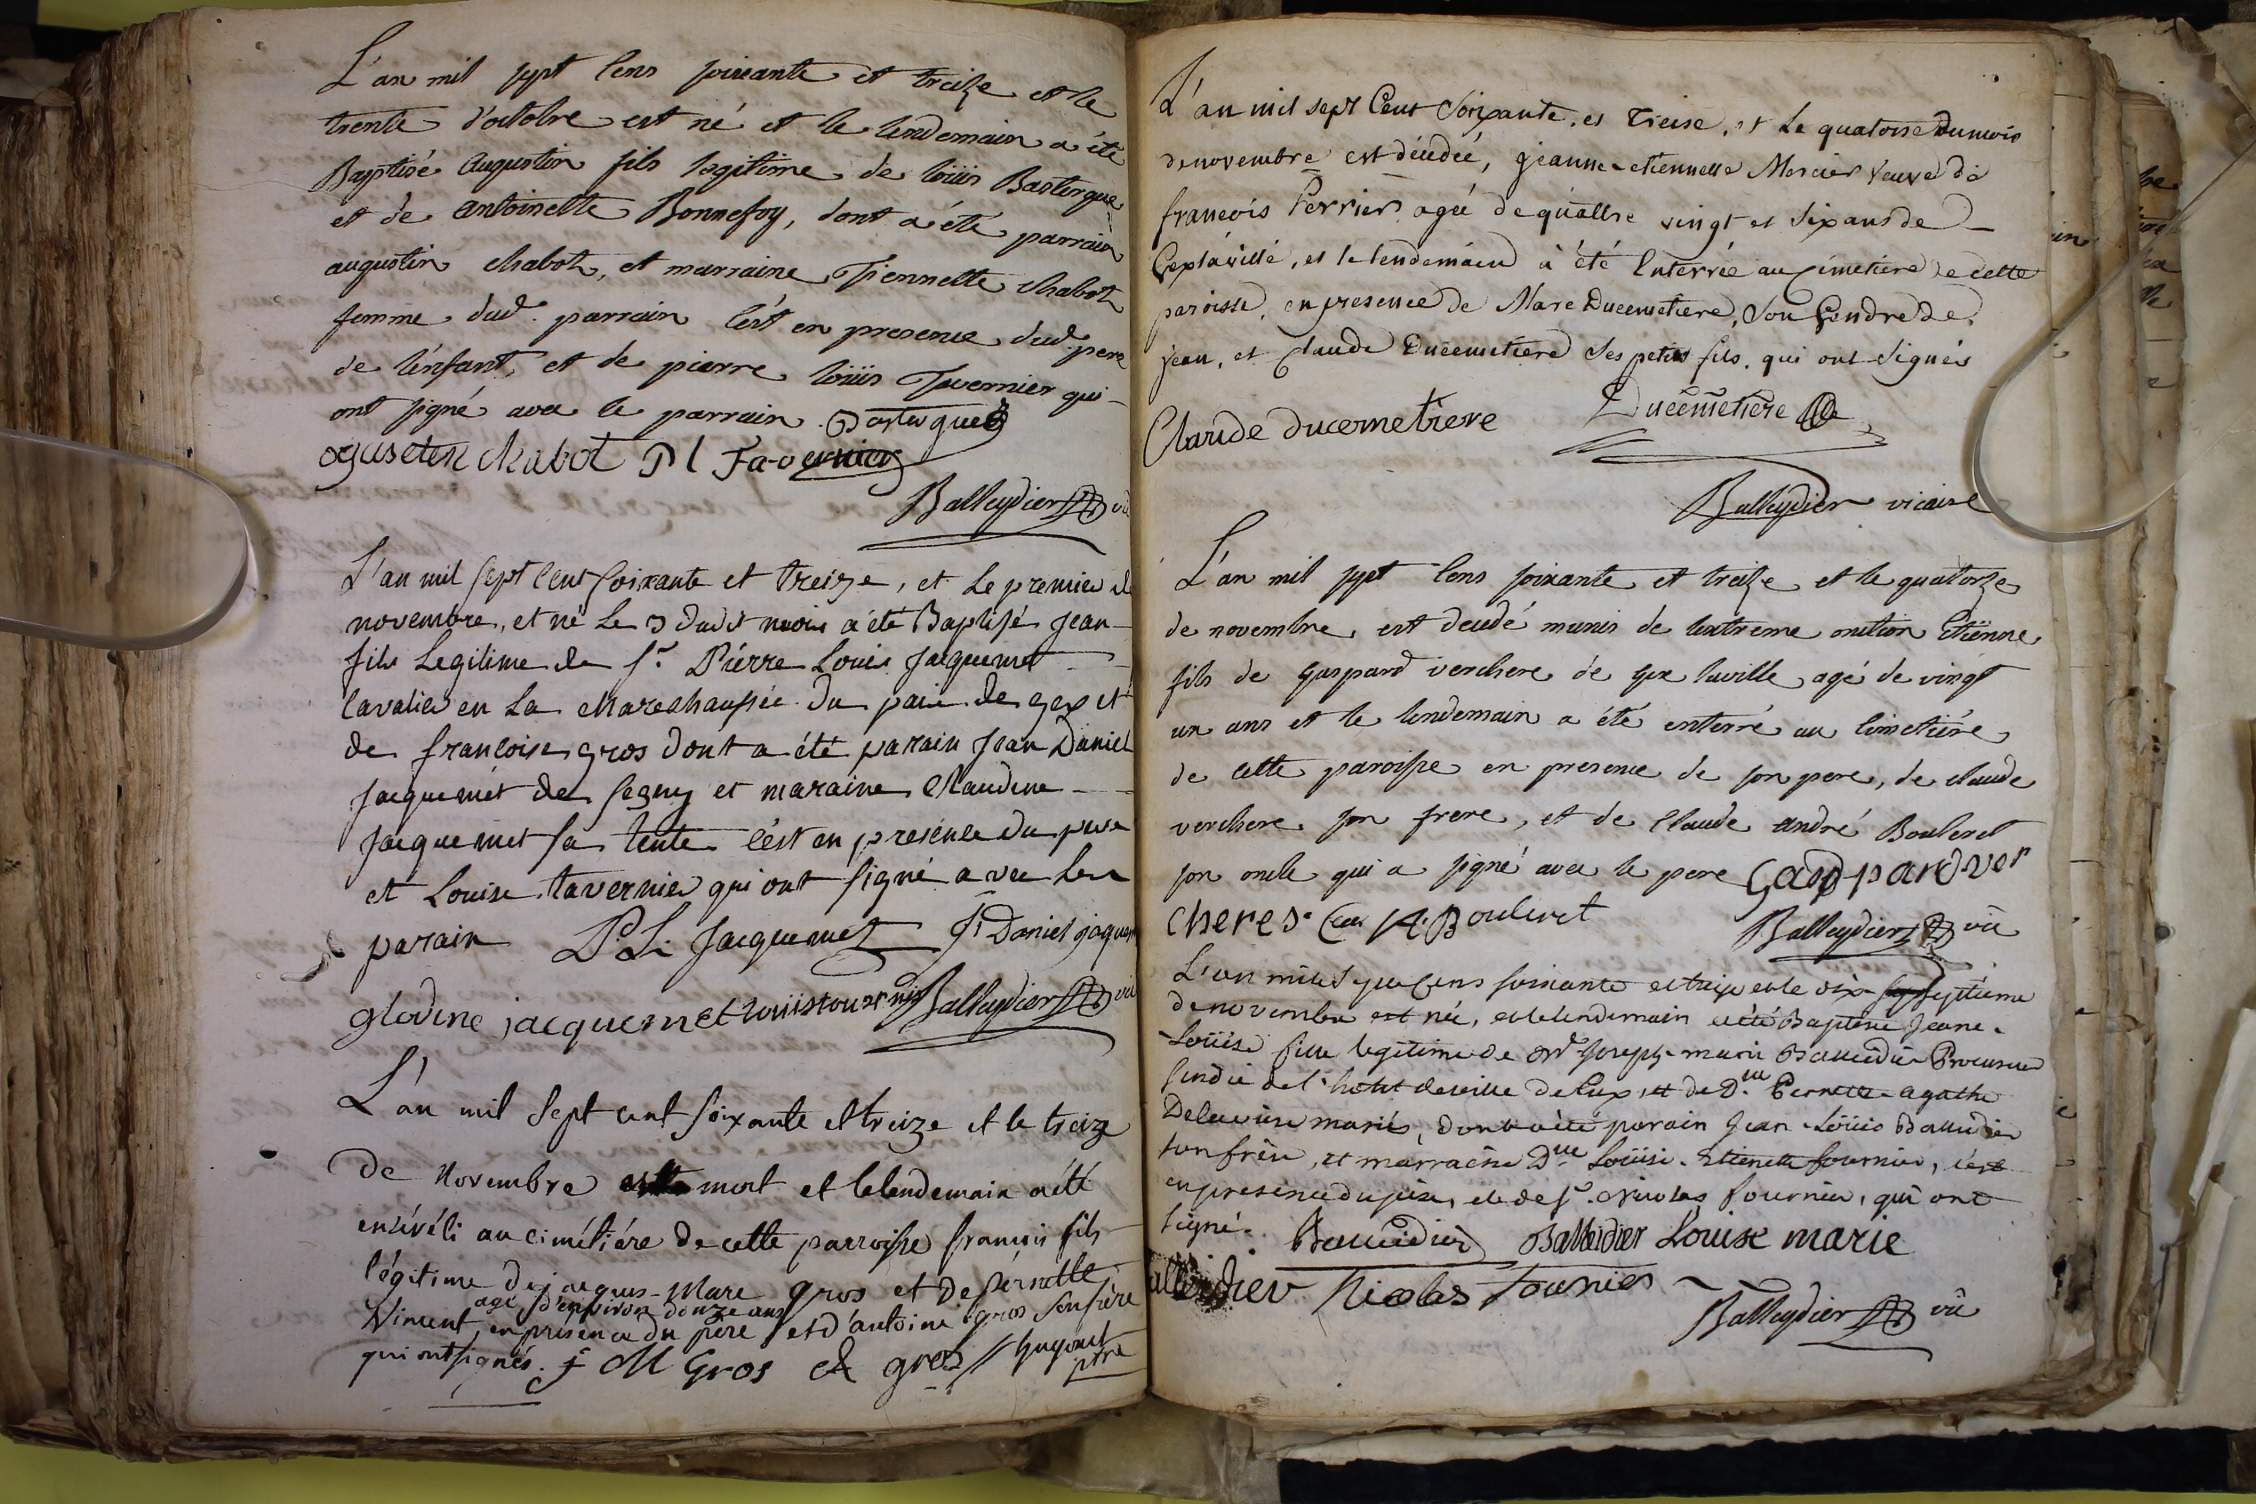 L'an mil sept Cens soixante et treize et le
trente d'octobre est né et le lendemain a été
Baptisé Augustin fils legitime de loüis Bastergue
et de antoinette Bonnefoy, dont a été parrain
augustin chabot, et marraine Tiennette chabot
femme dud. parrain C'est en presence dud. pere
de l'enfant, et de pierre loüis Tavernier qui
ont signé avec le parrain.
oguseten chabot P l Tavernier
Balleydier vic
L'an mil sept Cent soixante et treize, et Le premier de
novembre, et né Le 3 dudit mois a été Baptisé Jean
fils Legitime de Sr. Piérre Louis Jacquemet
Cavalier en La Marechaussée du païs de gex et
de francoise gros dont a été parain Jean Daniel
Jacquemet de Segny et maraine Claudine
Jacquemet sa tente c'est en présence du pere
et Louise tavernier qui ont signé avec Le
parain P. L. Jacquemet J Daniel jaquem
glodine jacquemet Balleydier vic
L'an mil Sept cent soixante et treize et le treize
De Novembre est mort et le lendemain a été
enséveli au cimétiére de cette parroisse françois fils
légitime de jacques-Marc gros et De pernette
agé d'environ douze ans
Vincent, en présence du pére et d'antoine gros son frére
qui ont signés. J M Gros A gros Huyont ptre
L'an mil sept Cent Soixante. et Treise, et Le quatorse Du mois
de novembre est décédéé, jeanne-etiennette Mercier Veuve de
francois Perrier agéé de quattre vingt et Six ans de
Gex la ville, et le lendemain à été Enterrée au Cimetiere de cette
paroisse, en presence de Marc Ducemetiere, Son Gendre de
jean, et Claude Ducemetiere Ses petits fils. qui ont Signés
Claude ducemetiere Ducemetiere
Balleydier vicaire
L'an mil sept Cens soixante et treize et le quatorze
de novembre est decedé munis de l'extreme onction Etiënne
fils de Gaspard verchere de gex laville agé de vingt
un ans et le lendemain a été enterré au Cimetiére
de cette paroisse en presence de son pere, de claude
verchere son frere, et de Claude andré Bouleret
son oncle qui a signé avec le pere Gaspard ver
cheres. A. Bouleret
Balleydier vic
L'an mille Sept Cens soixante et treize et le dix septieme
de novembre est née, et le lendemain a été Baptisée Jeane-
Loüise fille legitime de Md Joseph-marie Balleidier Procureur
sindic de l'hotel de ville de Gex, et de Dlle. Pernette-agathe
Delaviere mariés, dont a été parain Jean-Loüis Balleidier
son frère, et marraine Dlle Loüise-Etienette fournier, c'est
en presence du pere, et de Sr. Nicolas fournier, qui ont
signé. Balleidier Balleidier Louise marie
alleidier Nicolas Fournier
Balleydier vic